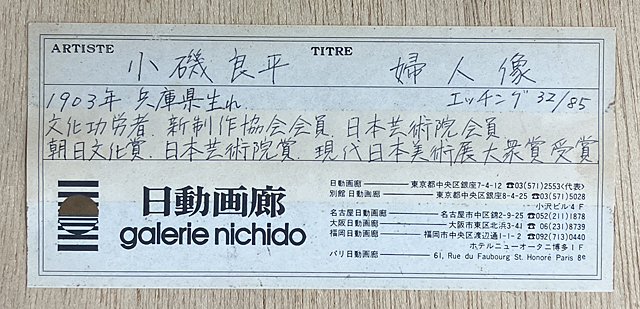 ARTISTE 小磯良平 TITRE 婦人像
1903年 兵庫県生れ エッチング 32/85
文化功労者. 新制作協会会員. 日本芸術院会員
朝日文化賞. 日本芸術院賞. 現代日本美術展大衆賞受賞
日動画廊
galerie nichido
日動画廊 東京都中央区銀座7-4-12 ☎03(571)2553<代表>
別館 日動画廊 東京都中央区銀座8-4-25 ☎03(571)5028
小沢ビル4F
名古屋日動画廊 名古屋市中区錦2-9-25 ☎052(211)1878
大阪日動画廊 大阪市東区北浜3-41 ☎06(231)8739
福岡日動画廊 福岡市中央区渡辺通1-1-2 ☎092(713)0440
ホテルニューオータニ博多1F
パリ日動画廊 61, Rue du Faubourg St. Honoré Paris 8e